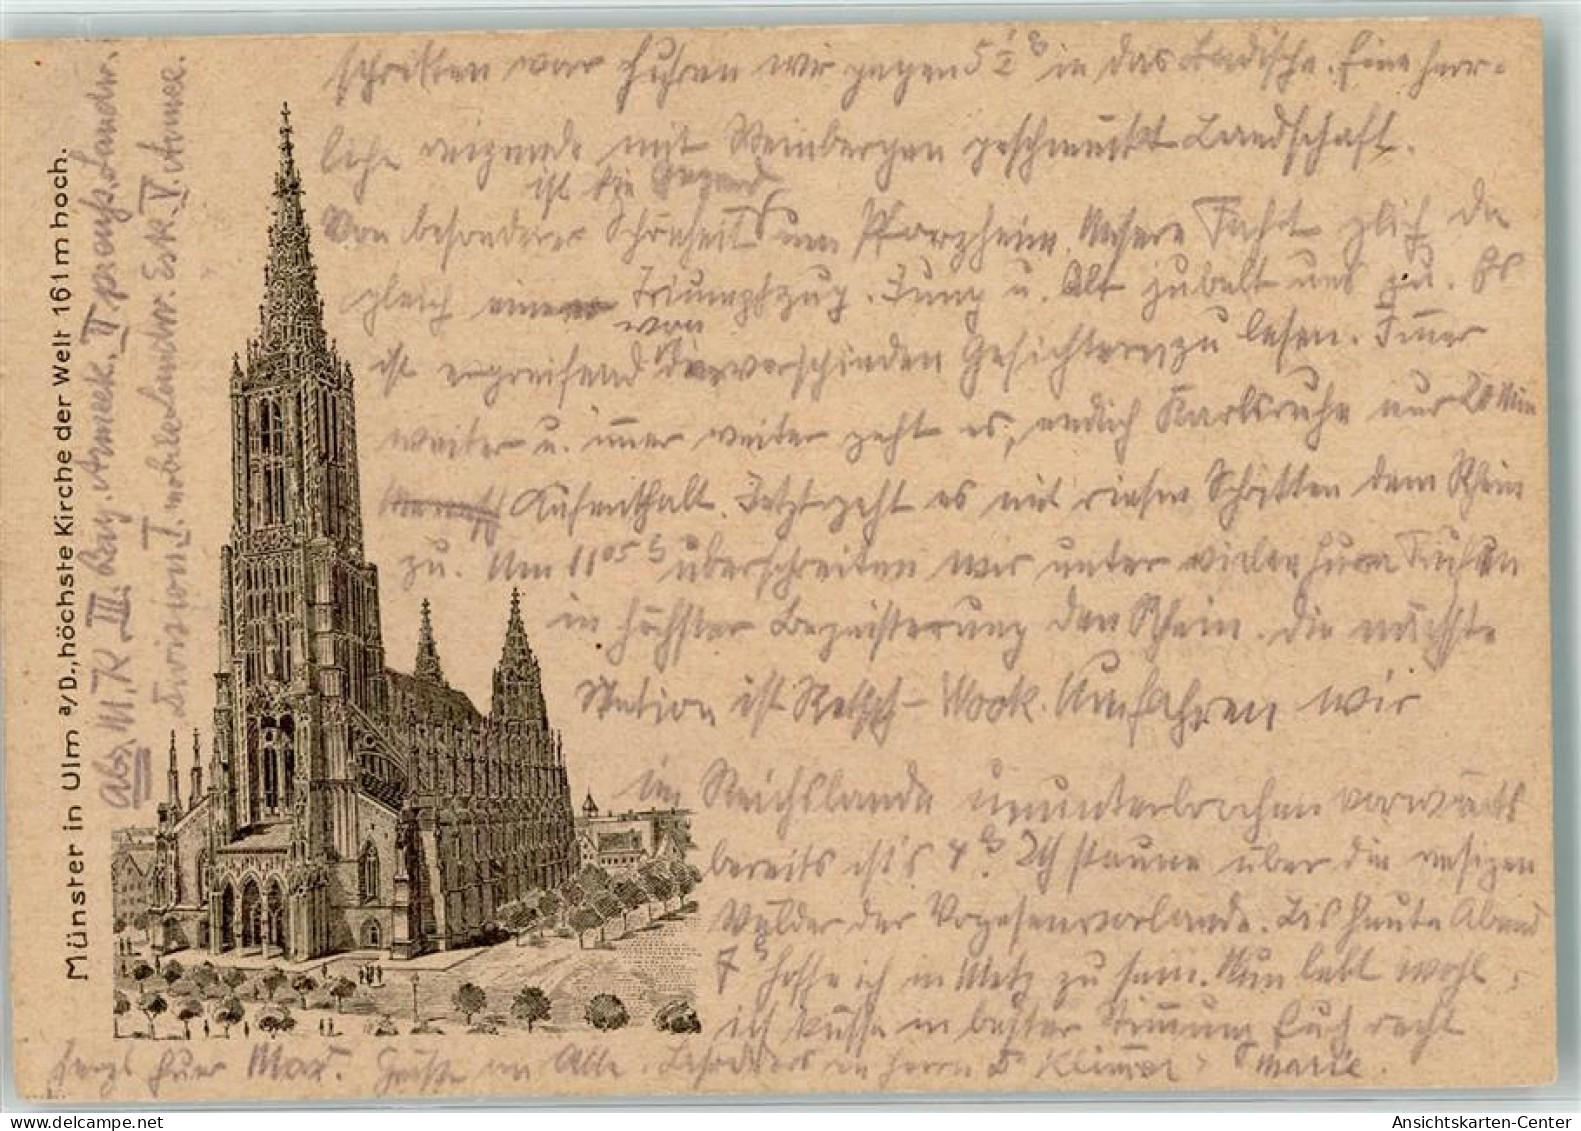 Münster in Ulm a/D., höchste Kirche der Welt 161 m hoch.
Abs. M. K. III. bay. Armeek. II preuß. Landw.
Division I. mobile Landw. Esk. V. Armee.
schritten war fuhren wir gegen 5 1/2 h in das Badische. Eine herr-
liche reizende mit Weinbergen geschmückt Landschaft.
ist die Gegend
Von besonderer Schönheit um Pforzheim. Unsere Fahrt glich
gleich einem Triumphzug. Jung u. Alt jubelt uns zu. Es
von
ist ergreifend Gesichtern zu lesen. Immer
weiter u. immer weiter geht es, endlich Karlsruhe nur 20 Min
Aufenthalt. Jetzt geht es mit riesen Schritten dem Rhein
zu. Um 11 05 h überschreiten wir unter vielen Hurra Rufen
in höchster Begeisterung den Rhein. Die nächste
Station ist Woerth. fahren wir
im Reichslande ununterbrochen vorwärts
bereits ist's 4 h. Ich staune über die riesigen
Wälder der Vogesenvorlande. Bis heute Abend
7 h hoffe ich in Metz zu sein. Nun lebt wohl,
ich küsse in bester Stimmung Euch recht
herzl Euer Max. Grüße an Alle. Besonders an Herrn D Klimmer Marie.
Ansichtskarten-Center